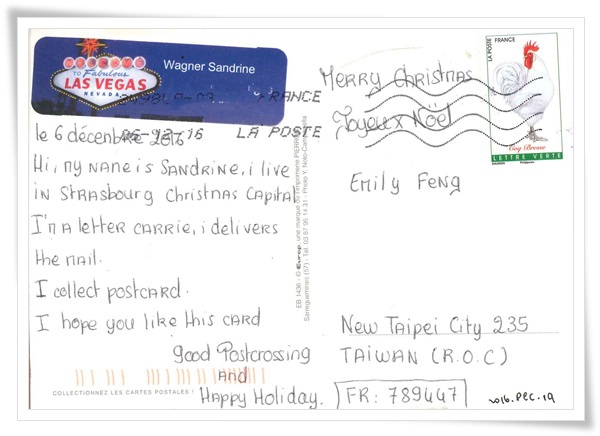 WELCOME
TO Fabulous
LAS VEGAS
NEVADA
Wagner Sandrine
FRANCE
06-12-16 LA POSTE
le 6 décembre 2016
Hi, my name is SANDRINE, i live
in STRASBOURG Christmas Capital
I'm a letter CARRIE, i delivers
the mail.
I collect postcard.
I hope you like this CARD
good Postcrossing
And
Happy Holiday.
COLLECTIONNEZ LES CARTES POSTALES !
EB 1436 - © Europ, une marque de l'imprimerie PIERRON
Sarreguemines (57) - Tél. 03 87 95 14 31 - Photo Y. Noto-Campanella
Merry Christmas
Joyeux Noël
LA POSTE
FRANCE
Coq Bresse
LETTRE VERTE
Emily Feng
New Taipei City 235
TAIWAN (R.O.C)
FR: 789447
2016.DEC.19